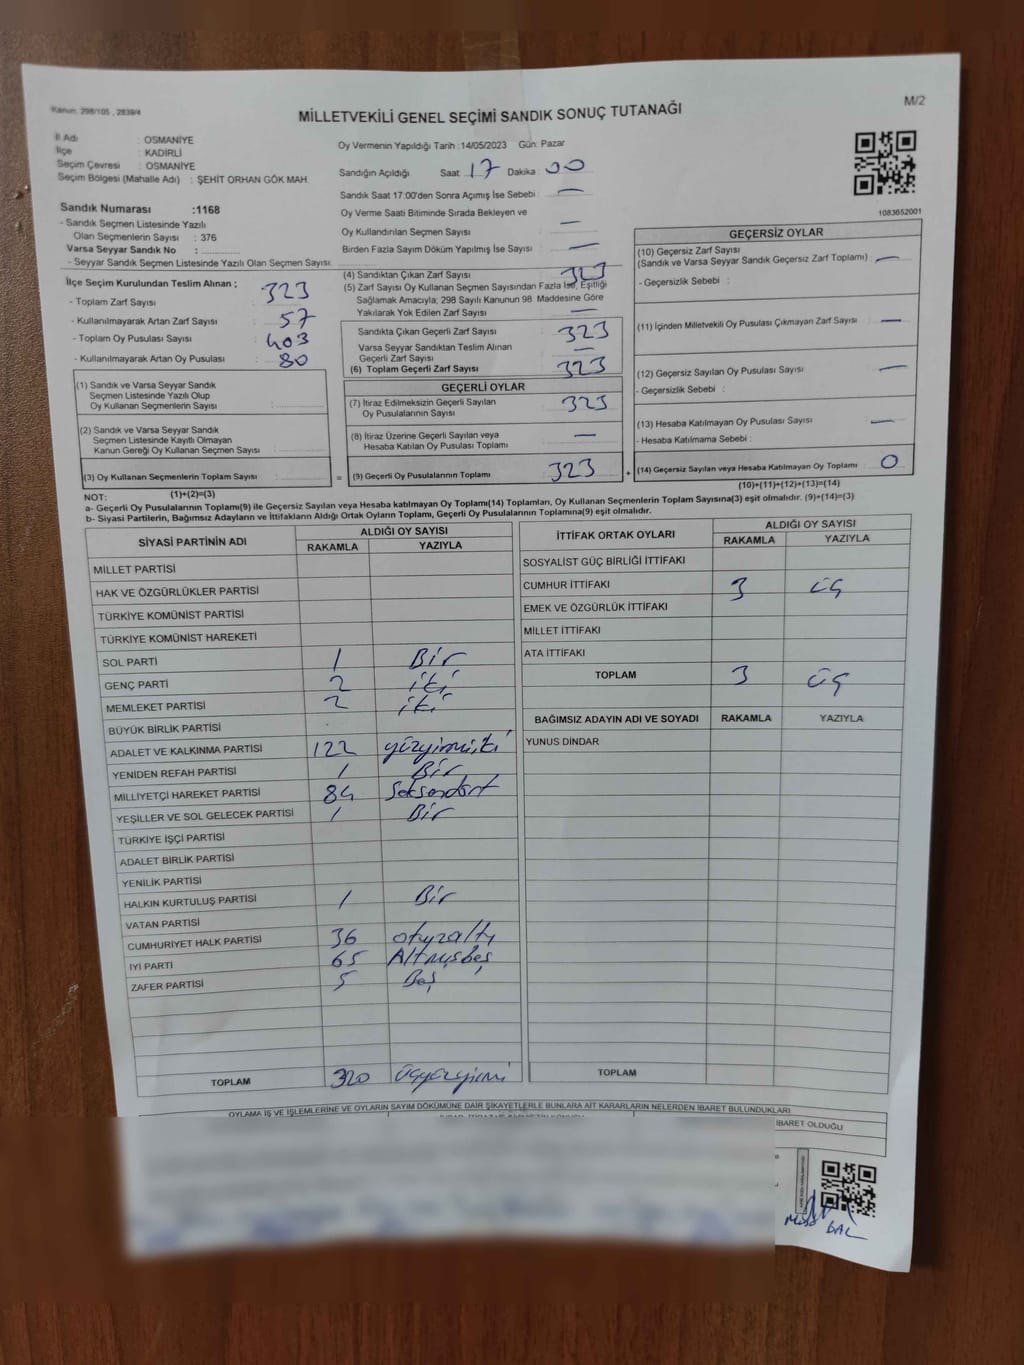 Kanun: 298/105 , 2839/4
MİLLETVEKİLİ GENEL SEÇİMİ SANDIK SONUÇ TUTANAĞI
M/2
İl Adı : OSMANİYE
İlçe : KADİRLİ
Seçim Çevresi : OSMANİYE
Seçim Bölgesi (Mahalle Adı) : ŞEHİT ORHAN GÖK MAH.
Oy Vermenin Yapıldığı Tarih :14/05/2023 Gün: Pazar
Sandığın Açıldığı Saat 17 Dakika 00
Sandık Saat 17:00'den Sonra Açımış İse Sebebi : —
Oy Verme Saati Bitiminde Sırada Bekleyen ve
Oy Kullandırılan Seçmen Sayısı : —
Birden Fazla Sayım Döküm Yapılmış İse Sayısı : —
1083652001
Sandık Numarası :1168
- Sandık Seçmen Listesinde Yazılı
Olan Seçmenlerin Sayısı : 376
Varsa Seyyar Sandık No :
- Seyyar Sandık Seçmen Listesinde Yazılı Olan Seçmen Sayısı:
İlçe Seçim Kurulundan Teslim Alınan ;
- Toplam Zarf Sayısı : 323
- Kullanılmayarak Artan Zarf Sayısı : 57
- Toplam Oy Pusulası Sayısı : 403
- Kullanılmayarak Artan Oy Pusulası : 80
(1) Sandık ve Varsa Seyyar Sandık
Seçmen Listesinde Yazılı Olup
Oy Kullanan Seçmenlerin Sayısı :
(2) Sandık ve Varsa Seyyar Sandık
Seçmen Listesinde Kayıtlı Olmayan
Kanun Gereği Oy Kullanan Seçmen Sayısı :
(3) Oy Kullanan Seçmenlerin Toplam Sayısı :
(4) Sandıktan Çıkan Zarf Sayısı : 323
(5) Zarf Sayısı Oy Kullanan Seçmen Sayısından Fazla İse, Eşitliği
Sağlamak Amacıyla; 298 Sayılı Kanunun 98 Maddesine Göre
Yakılarak Yok Edilen Zarf Sayısı : —
Sandıkta Çıkan Geçerli Zarf Sayısı : 323
Varsa Seyyar Sandıktan Teslim Alınan
Geçerli Zarf Sayısı : —
(6) Toplam Geçerli Zarf Sayısı : 323
GEÇERLİ OYLAR
(7) İtiraz Edilmeksizin Geçerli Sayılan
Oy Pusulalarının Sayısı : 323
(8) İtiraz Üzerine Geçerli Sayılan veya
Hesaba Katılan Oy Pusulası Toplamı : —
= (9) Geçerli Oy Pusulalarının Toplamı : 323 +
GEÇERSİZ OYLAR
(10) Geçersiz Zarf Sayısı
(Sandık ve Varsa Seyyar Sandık Geçersiz Zarf Toplamı) : —
- Geçersizlik Sebebi :
(11) İçinden Milletvekili Oy Pusulası Çıkmayan Zarf Sayısı : —
(12) Geçersiz Sayılan Oy Pusulası Sayısı : —
- Geçersizlik Sebebi :
(13) Hesaba Katılmayan Oy Pusulası Sayısı : —
- Hesaba Katılmama Sebebi :
(14) Geçersiz Sayılan veya Hesaba Katılmayan Oy Toplamı : 0
NOT: (1)+(2)=(3)
(10)+(11)+(12)+(13)=(14)
a- Geçerli Oy Pusulalarının Toplamı(9) ile Geçersiz Sayılan veya Hesaba katılmayan Oy Toplamı(14) Toplamları, Oy Kullanan Seçmenlerin Toplam Sayısına(3) eşit olmalıdır. (9)+(14)=(3)
b- Siyasi Partilerin, Bağımsız Adayların ve İttifakların Aldığı Ortak Oyların Toplamı, Geçerli Oy Pusulalarının Toplamına(9) eşit olmalıdır.
SİYASİ PARTİNİN ADI ALDIĞI OY SAYISI
RAKAMLA YAZIYLA
MİLLET PARTİSİ
HAK VE ÖZGÜRLÜKLER PARTİSİ
TÜRKİYE KOMÜNİST PARTİSİ
TÜRKİYE KOMÜNİST HAREKETİ
SOL PARTİ 1 Bir
GENÇ PARTİ 2 iki
MEMLEKET PARTİSİ 2 iki
BÜYÜK BİRLİK PARTİSİ
ADALET VE KALKINMA PARTİSİ 122 yüzyirmiiki
YENİDEN REFAH PARTİSİ 1 Bir
MİLLİYETÇİ HAREKET PARTİSİ 84 Seksendört
YEŞİLLER VE SOL GELECEK PARTİSİ 1 Bir
TÜRKİYE İŞÇİ PARTİSİ
ADALET BİRLİK PARTİSİ
YENİLİK PARTİSİ
HALKIN KURTULUŞ PARTİSİ 1 Bir
VATAN PARTİSİ
CUMHURİYET HALK PARTİSİ 36 otuzaltı
İYİ PARTİ 65 Altmışbeş
ZAFER PARTİSİ 5 Beş
TOPLAM 320 üçyüzyirmi
İTTİFAK ORTAK OYLARI ALDIĞI OY SAYISI
RAKAMLA YAZIYLA
SOSYALİST GÜÇ BİRLİĞİ İTTİFAKI
CUMHUR İTTİFAKI 3 üç
EMEK VE ÖZGÜRLÜK İTTİFAKI
MİLLET İTTİFAKI
ATA İTTİFAKI
TOPLAM 3 üç
BAĞIMSIZ ADAYIN ADI VE SOYADI RAKAMLA YAZIYLA
YUNUS DİNDAR
TOPLAM
OYLAMA İŞ VE İŞLEMLERİNE VE OYLARIN SAYIM DÖKÜMÜNE DAİR ŞİKAYETLERLE BUNLARA AİT KARARLARIN NELERDEN İBARET BULUNDUKLARI
İBARET OLDUĞU